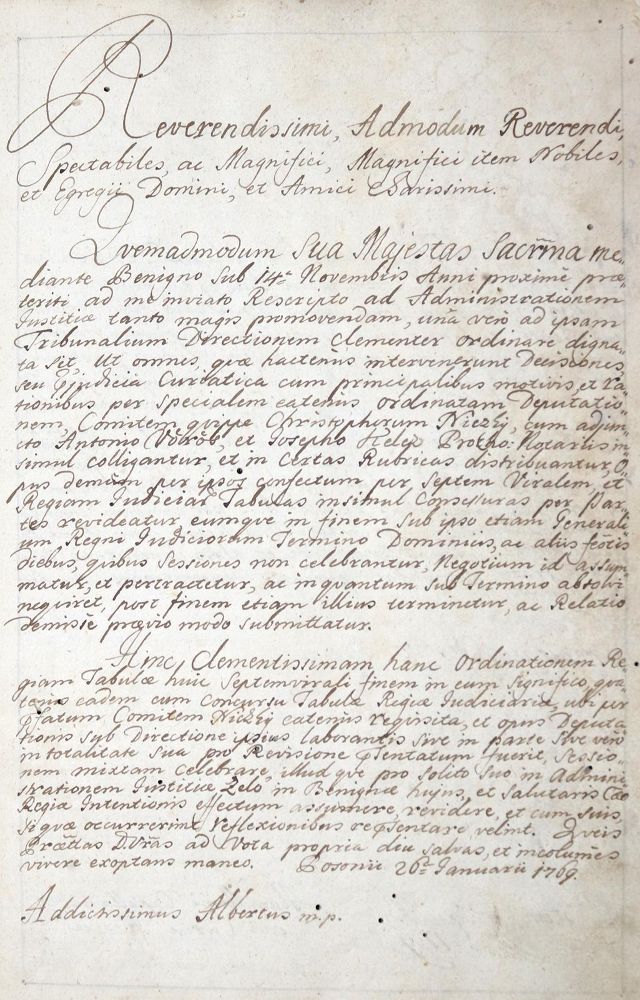 Reverendissimi, Admodum Reverendi,
Spectabiles, ac Magnifici, Magnifici item Nobiles,
et Egregii Domini, et Amici Charissimi.
Quemadmodum Sua Majestas Sacrma me-
diante Benigno sub 14a Novembris Anni proxime præ-
teriti ad me inviato Rescripto ad Administrationem
Iustitiæ tanto magis promovendam, una vero ad ipsam
Tribunalium Directionem Clementer ordinare digna-
ta sit, Ut omnes, quæ hactenus intervenerunt Decisiones,
seu Præjudicia Curiatica cum principalibus motivis, et ra-
tionibus per specialem eatenus ordinatam Deputatio-
nem, Comitem quippe Christophorum Niczky, cum adjun-
cto Antonio Vörös, et Josepho Protho: Notariis in-
simul colligantur, et in certas Rubricas distribuantur, O-
pus demum per ipsos confectum per Septem Viralem, et
Regiam Iudiciar Tabulas insimul Consessuras per Par-
tes revideatur, eumque in finem sub ipso etiam Generali-
um Regni Iudiciorum Termino Dominicis, ac aliis festis
diebus, quibus Sessiones non celebrantur, Negotium id assum-
matur, et pertractetur, ac in quantum sub Termino absolvi
nequiret, post finem etiam illius terminetur, ac Relatio
demisse prævio modo submittatur.
Hinc Clementissimam hanc ordinationem Re-
giam Tabulæ huic Septemvirali finem in eum significo, qua-
tenus eadem cum concursu Tabulæ Regiæ Iudiciariæ, ubi per
Præfatum Comitem Niczky eatenus requisita, et opus Deputa-
tionis sub Directione ipsius laborantis sive in parte sive vero
in totalitate sua pro Revisione Præsentatum fuerit, Sessio-
nem mixtam celebrare, illudque pro solito suo in Admini-
strationem Iustitiæ Zelo, in Benignæ hujus, et salutaris Cæo
Regiæ Intentionis effectum assumere, revidere, et cum suis
Si quæ occurrerint reflexionibus repræsentare velint. Queis
Prætitas D.Vras ad vota propria diu salvas, et incolumes
vivere exoptans maneo. Posonii 26a Ianuarii 1769.
Addictissimus Albertus m.p.